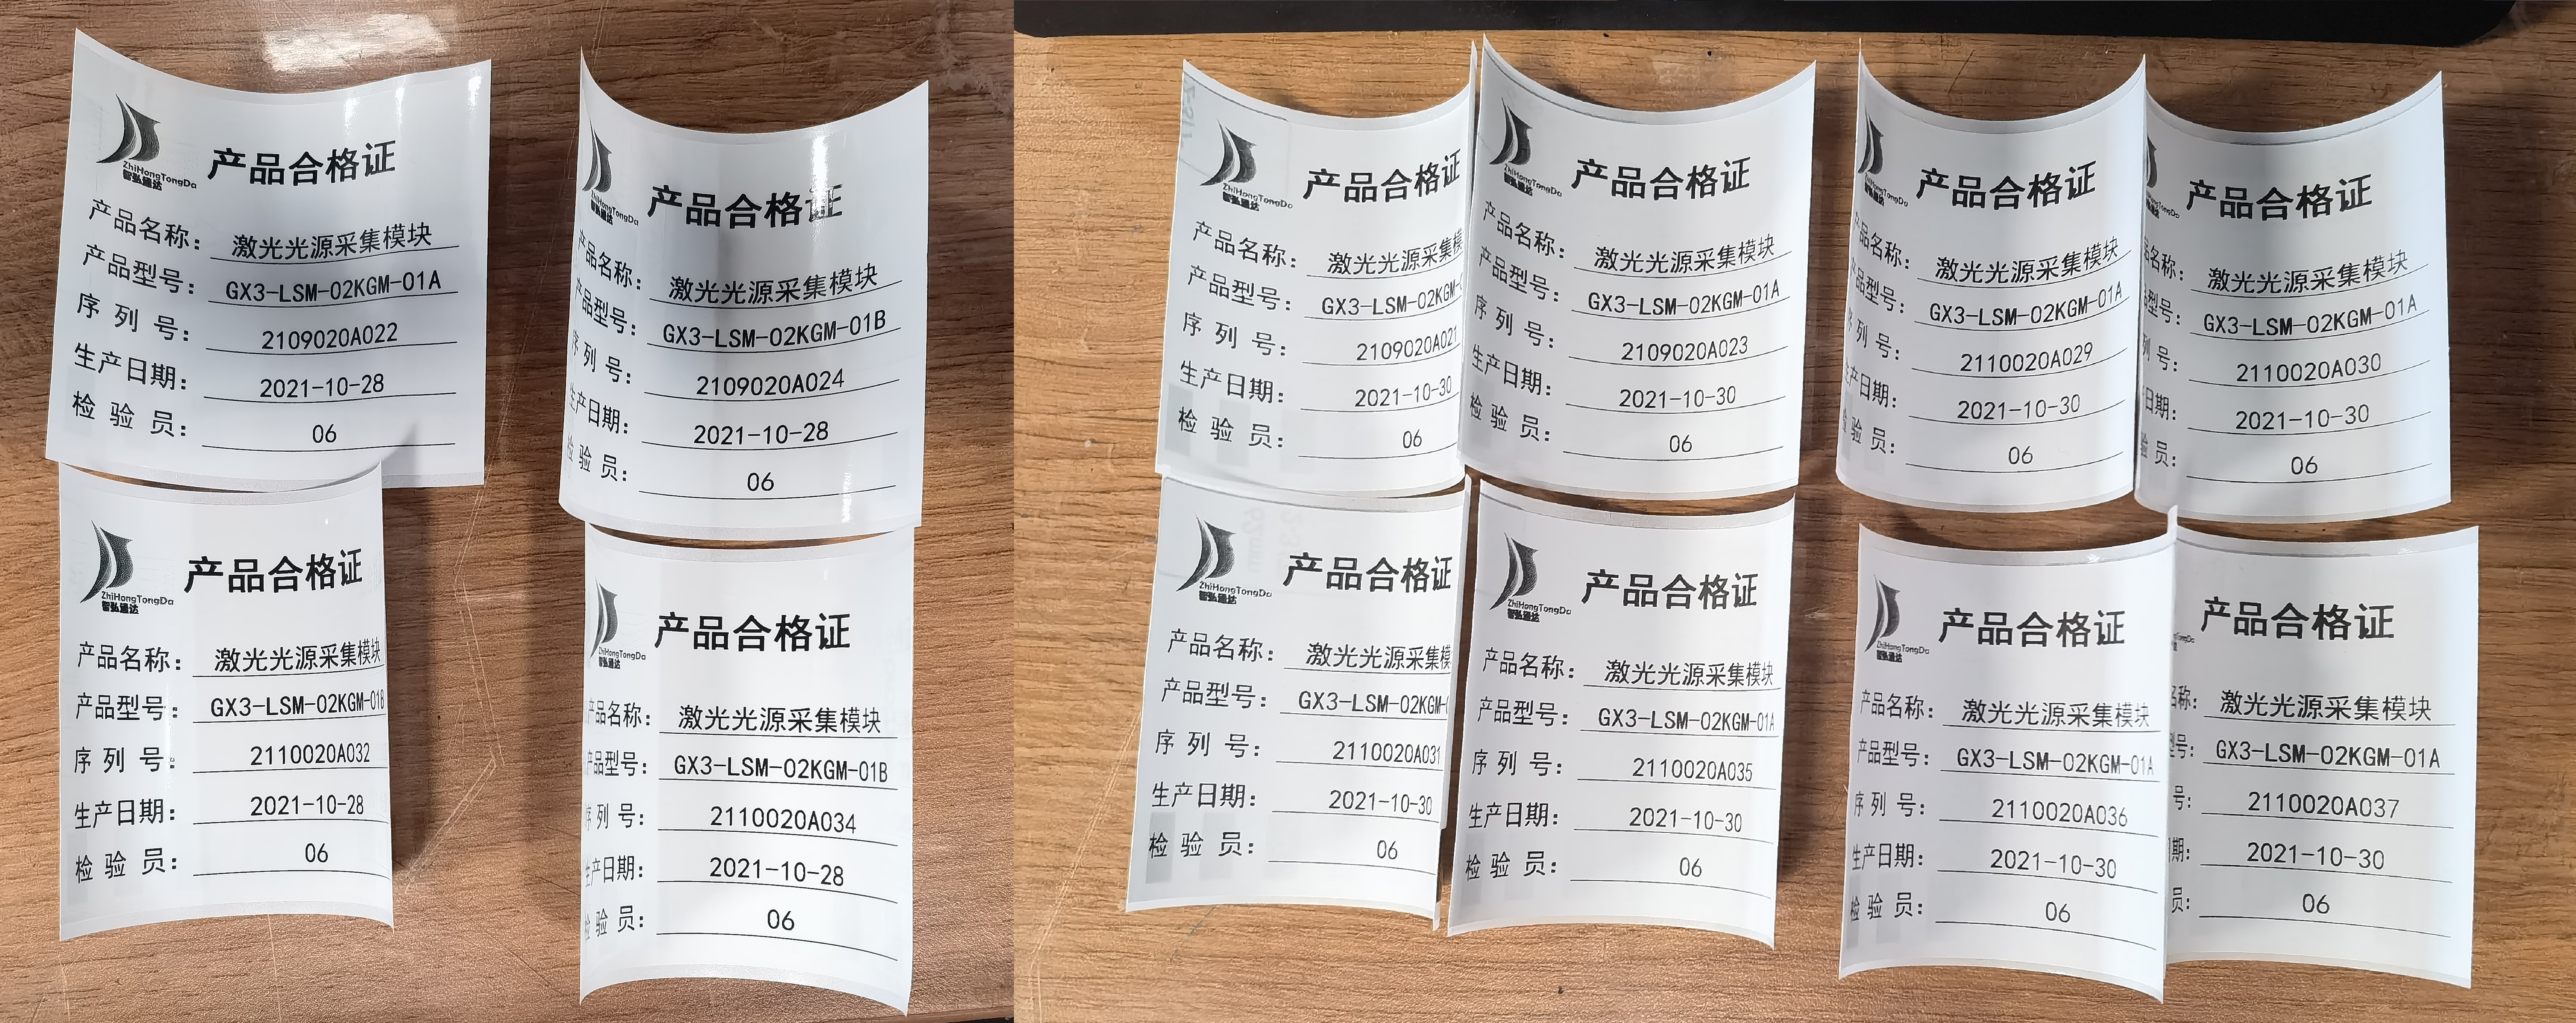 ZhiHongTongDa
智弘通达
产品合格证
产品名称： 激光光源采集模块
产品型号： GX3-LSM-02KGM-01A
序 列 号： 2109020A022
生产日期： 2021-10-28
检 验 员： 06
HongTongDa
智弘通达
产品合格证
产品名称： 激光光源采集模块
产品型号： GX3-LSM-02KGM-01B
序 列 号： 2109020A024
生产日期： 2021-10-28
检 验 员： 06
ZhiHongTongDa
智弘通达
产品合格证
产品名称： 激光光源采集模块
产品型号： GX3-LSM-02KGM-01B
序 列 号： 2110020A032
生产日期： 2021-10-28
检 验 员： 06
ZhiHongTongDa
智弘通达
产品合格证
产品名称： 激光光源采集模块
产品型号： GX3-LSM-02KGM-01B
序 列 号： 2110020A034
生产日期： 2021-10-28
检 验 员： 06
ZhiHongTongDa
智弘通达
产品合格证
产品名称： 激光光源采集模
产品型号： GX3-LSM-02KGM-
序 列 号： 2109020A021
生产日期： 2021-10-30
检 验 员： 06
ZhiHongTongDa
智弘通达
产品合格证
产品名称： 激光光源采集模块
产品型号： GX3-LSM-02KGM-01A
序 列 号： 2109020A023
生产日期： 2021-10-30
检 验 员： 06
HongTongDa
智弘通达
产品合格证
产品名称： 激光光源采集模块
产品型号： GX3-LSM-02KGM-01A
序 列 号： 2110020A029
生产日期： 2021-10-30
检 验 员： 06
TongDa
产品合格证
名称： 激光光源采集模块
型号： GX3-LSM-02KGM-01A
列 号： 2110020A030
日期： 2021-10-30
验 员： 06
ZhiHongTongDa
智弘通达
产品合格证
产品名称： 激光光源采集模
产品型号： GX3-LSM-02KGM-
序 列 号： 2110020A031
生产日期： 2021-10-30
检 验 员： 06
ZhiHongTongDa
智弘通达
产品合格证
产品名称： 激光光源采集模块
产品型号： GX3-LSM-02KGM-01A
序 列 号： 2110020A035
生产日期： 2021-10-30
检 验 员： 06
ZhiHongTongDa
智弘通达
产品合格证
产品名称： 激光光源采集模块
产品型号： GX3-LSM-02KGM-01A
序 列 号： 2110020A036
生产日期： 2021-10-30
检 验 员： 06
TongDa
产品合格证
名称： 激光光源采集模块
型号： GX3-LSM-02KGM-01A
号： 2110020A037
期： 2021-10-30
员： 06